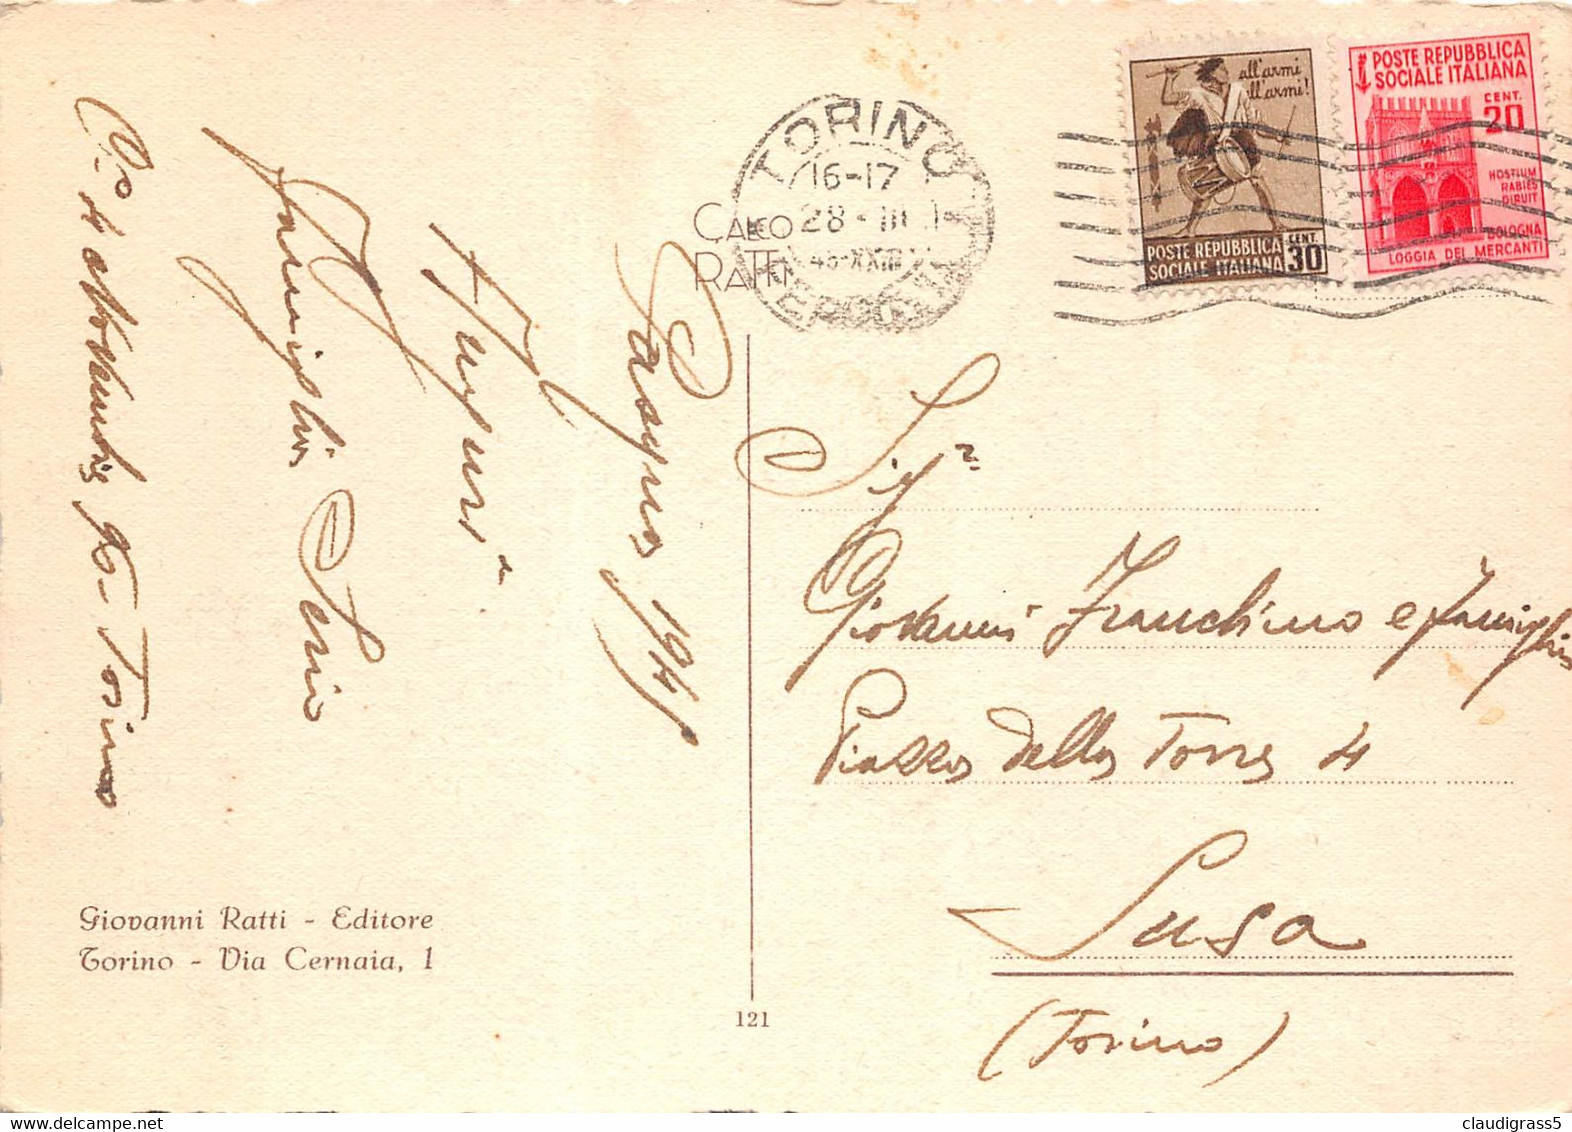 Pasqua 1945
Auguri
Famiglia Serio
Torino
CALCO
RATTI
TORINO
16-17
28-III
45-XXIII
all'armi
all'armi!
POSTE REPUBBLICA
SOCIALE ITALIANA
CENT.
30
POSTE REPUBBLICA
SOCIALE ITALIANA
CENT.
20
HOSTIUM
RABIES
DIRUIT
BOLOGNA
LOGGIA DEI MERCANTI
Sigr
Giovanni Franchino e famiglia
Piazza della Torre 4
Susa
(Torino)
Giovanni Ratti - Editore
Torino - Via Cernaia, 1
121
claudigrass5